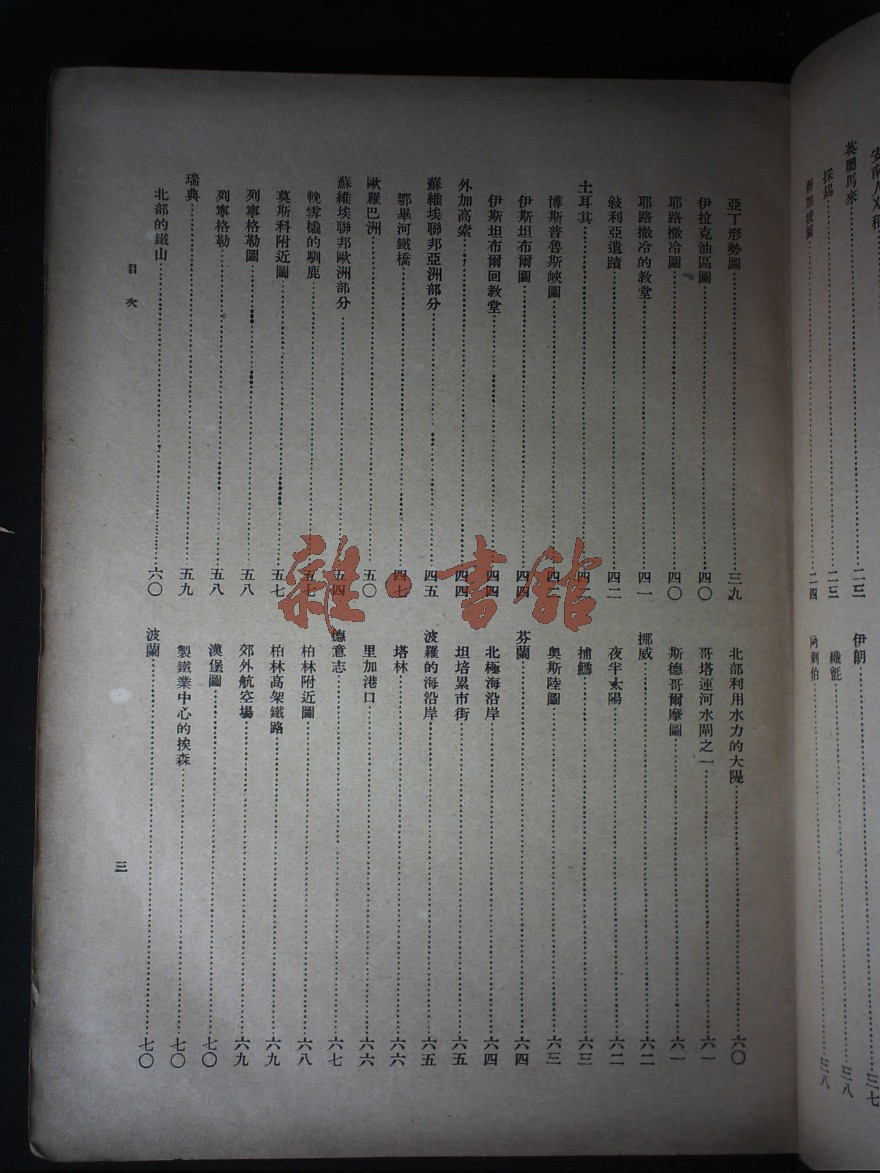 英屬馬來
採錫……二三
新加坡圖……二四
伊朗……三七
織氈……三八
阿剌伯……三八
亞丁形勢圖……三九
伊拉克油區圖……四〇
耶路撒冷圖……四〇
耶路撒冷的教堂……四一
敍利亞遺蹟……四二
土耳其……四二
博斯普魯斯峽圖……四三
伊斯坦布爾圖……四四
伊斯坦布爾回教堂……四四
外加高索……四四
蘇維埃聯邦亞洲部分……四五
鄂畢河鐵橋……四七
歐羅巴洲……五〇
蘇維埃聯邦歐洲部分……五四
輓雪橇的馴鹿……五七
莫斯科附近圖……五七
列寧格勒圖……五八
列寧格勒……五八
瑞典……五九
北部的鐵山……六〇
北部利用水力的大隄……六〇
哥塔運河水閘之一……六一
斯德哥爾摩圖……六一
挪威……六二
夜半太陽……六二
捕鱈……六三
奧斯陸圖……六三
芬蘭……六四
北極海沿岸……六四
坦培累市街……六五
波羅的海沿岸……六五
塔林……六六
里加港口……六六
德意志……六七
柏林附近圖……六八
柏林高架鐵路……六九
郊外航空場……六九
漢堡圖……七〇
製鐵業中心的挨森……七〇
波蘭……七〇
目次
三
雜·書館